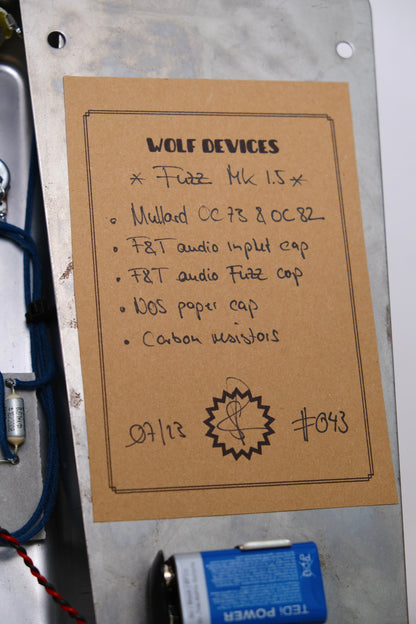 WOLF DEVICES
* Fuzz MK 1.5 *
• Mullard OC78 & OC82
• F&T audio input cap
• F&T audio Fuzz cap
• NOS paper cap
• Carbon resistors
07/23 #043
TEDi POWER